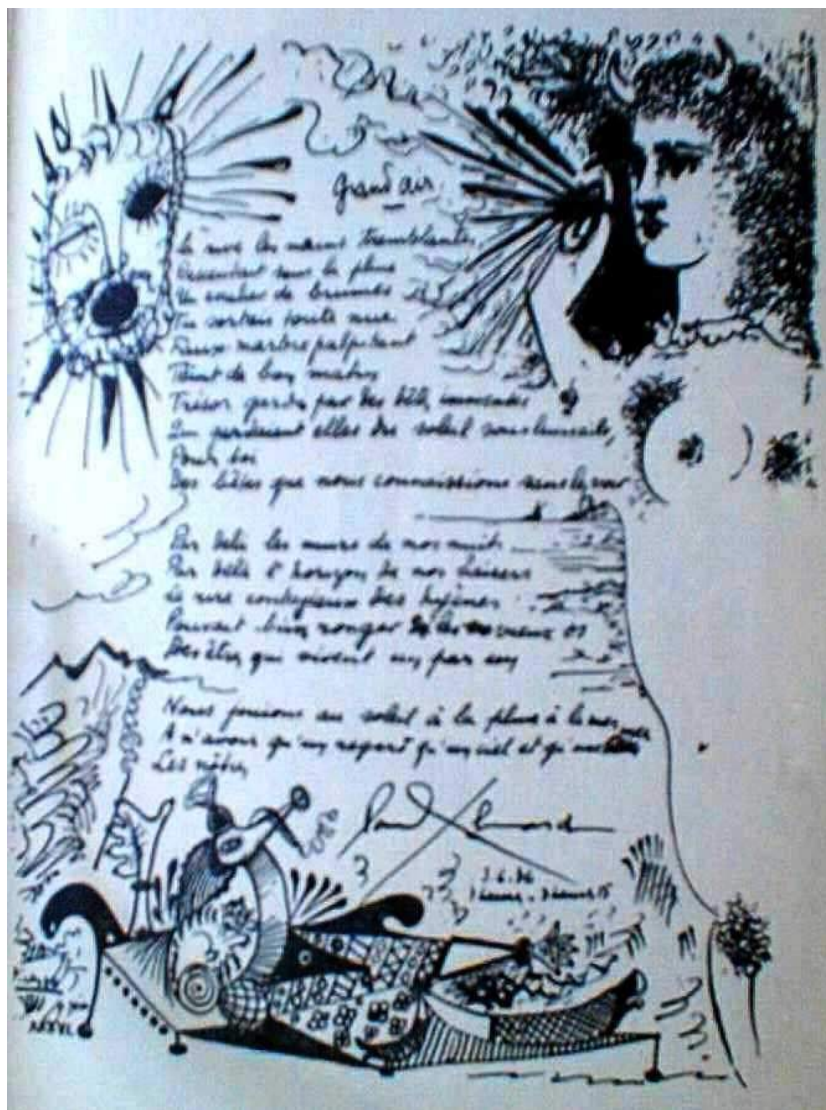 Grand air
La rive les mains tremblantes
Descendait sous la pluie
Un escalier de brumes
Tu sortais toute nue
Faux marbre palpitant
Teint de bon matin
Trésor gardé par des bêtes immenses
Qui gardaient elles du soleil sous leurs ailes,
Pour toi
Des bêtes que nous connaissions sans les voir
Par delà les murs de nos nuits
Par delà l'horizon de nos baisers
Le rire contagieux des hyènes
Pouvait bien ronger les vieux os
Des êtres qui vivent un par un
Nous jouions au soleil à la pluie à la mer
A n'avoir qu'un regard qu'un ciel et qu'une mer
Les nôtres
Paul Eluard
3.6.36